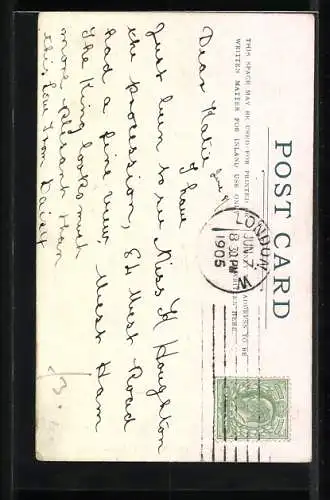 POST CARD
THIS SPACE MAY BE USED FOR PRINTED OR
WRITTEN MATTER FOR INLAND USE ONLY
ADDRESS TO BE
WRITTEN HERE.
LONDON, W
8.30 PM
JUN
1905
Dear Katie
I have
just been to see Miss H Houghton
the procession, 84 West Road
had a fine view West Ham
The King looks much
more pleasant than
this love from Daisy